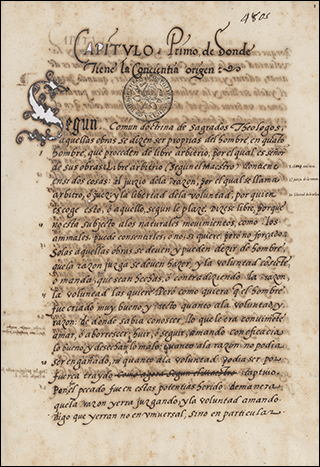 4801
CAPITVLO. Primo de donde
tiene la Conciencia origen.
Segun Comun doctrina de Sagrados Theologos,
aquellas obras se dizen ser proprias del hombre, en quãto
hombre, que proceden del libre arbitrio, por el qual es señor
de sus obras. Libre arbitrio (segun el Maestro) contiene
en si dos cosas: el juizio dela razon, por el qual se llama
arbitrio, ò juiz; y la libertad dela voluntad, por quien
escoge esto, ò aquello, segun le plaze. Dizese libre, porque
no esta subjecto alos naturales mouimientos, como los
animales: puede consentirlo, ò no, si quiere, pero no forçado.
Solas aquellas obras se deuen, y pueden dezir de hombre,
que la razon juzga se deuen hazer, y la voluntad
ò manda, que sean hechas, ò contradiziendo la razon
la voluntad las quiere. Pero como quiera que el hombre
fue criado muy bueno, y recto quanto ala voluntad, y
razon: de donde sabia conoscer lo que le era conuiniente
amar, ò aborrescer, huir, ò seguir, amando con eficacia
lo bueno, y desechando lo malo: quanto ala razon, no podia
ser engañado, ni quanto ala voluntad podia ser por
fuerça traydo captiuo.
Por el pecado fue en estas potentias herido de manera
que la razon yerra juzgando, y la voluntad amando.
Digo que yerran no en vniuersal, sino en particular